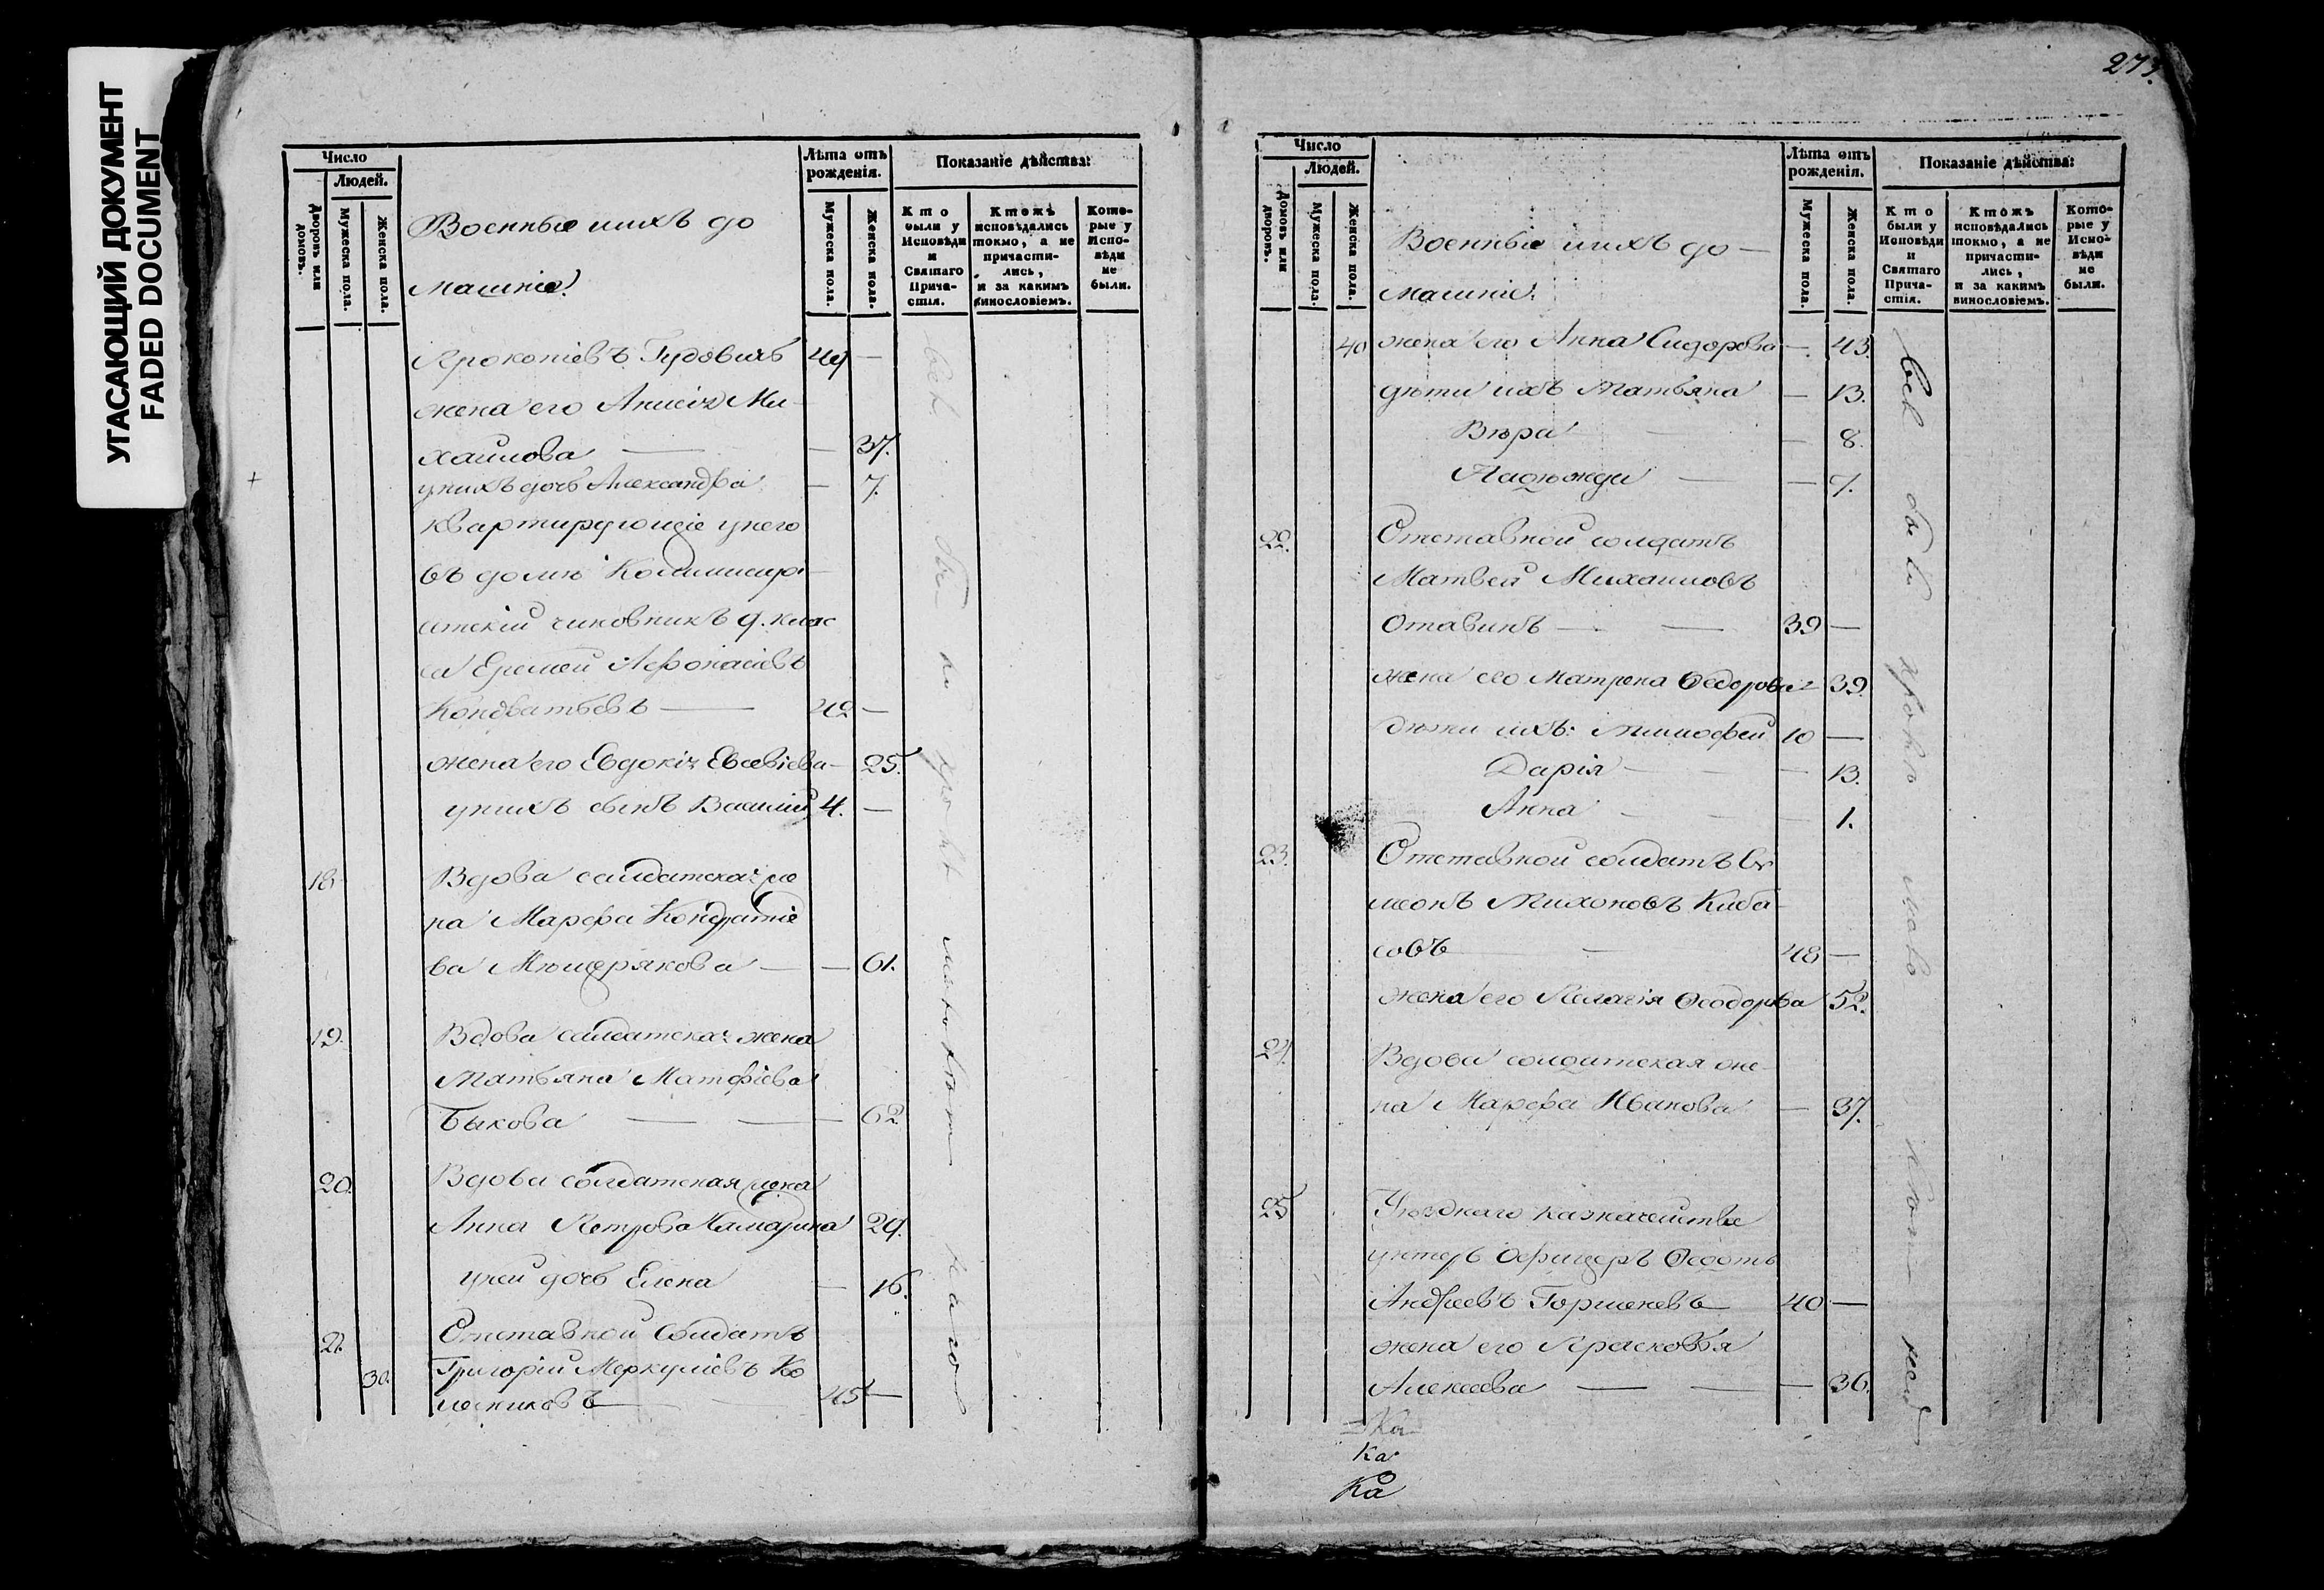 УГАСАЮЩИЙ ДОКУМЕНТ
FADED DOCUMENT
Число
Людей.
Дворовъ или домовъ.
Мужеска пола.
Женска пола.
Военные и ихъ до
машніе.
Лѣта отъ рожденія.
Мужеска пола.
Женска пола.
Показаніе дѣйства:
Кто были у Исповѣди и Святаго Причастія.
Ктожъ исповѣдались токмо, а не причастились, и за какимъ винословіемъ.
Которые у Исповѣди не были.
Прокопіевъ Гудовичъ 49 —
жена его Анисія Ми-
хаилова — — 37.
у нихъ дочь Александра — 7.
Квартирующіе у него
въ домѣ Коммисиріа-
етскій чиновникъ 9. клас
са Еремей Афонасіевъ
Кондратьевъ — 42 —
жена его Евдокія Евсевіева — 25.
у нихъ сынъ Василій 4. —
18. Вдова салдатская же
на Марфа Кондратіе
ва Мещерякова — — 61.
19. Вдова салдатская жена
Татьяна Матфіева
Быкова — — — 62
20. Вдова солдатская жена
Анна Петрова 29.
у ней дочь Елена — 16.
21. Отставной Солдатъ
30. Григорій Меркуліевъ Ко
лесниковъ — 45 —
Число
Людей.
Домовъ или дворовъ.
Мужеска пола.
Женска пола.
Военные и ихъ до —
машніе.
Лѣта отъ рожденія.
Мужеска пола.
Женска пола.
Показаніе дѣйства:
Кто были у Исповѣди и Святаго Причастія.
Ктожъ исповѣдались токмо, а не причастились, и за какимъ винословіемъ.
Которые у Исповѣди не были.
40 жена его Анна Сидорова — 43.
дѣти ихъ Татьяна — 13.
Вѣра — — 8.
Надѣжда — — 7.
22. Отставной солдатъ
Матвей Михаиловъ
Отавинъ — — 39 —
жена его Матрена Федорова — 39.
дѣти ихъ: Тимофей 10 —
Дарія — — 13.
Анна — 1.
23. Отставной солдатъ Си
меонъ Тихоновъ Киба
совъ — 48 —
жена его Пелагія Феодорова 52.
24. Вдова солдатская же-
на Марфа Иванова — 37.
25 Уѣзднаго казначейства
унтеръ офицеръ Федотъ
Андреевъ Горшеневъ 40 —
жена его Прасковья
Алексеева — — — 36.
Ка
Ка
Ка